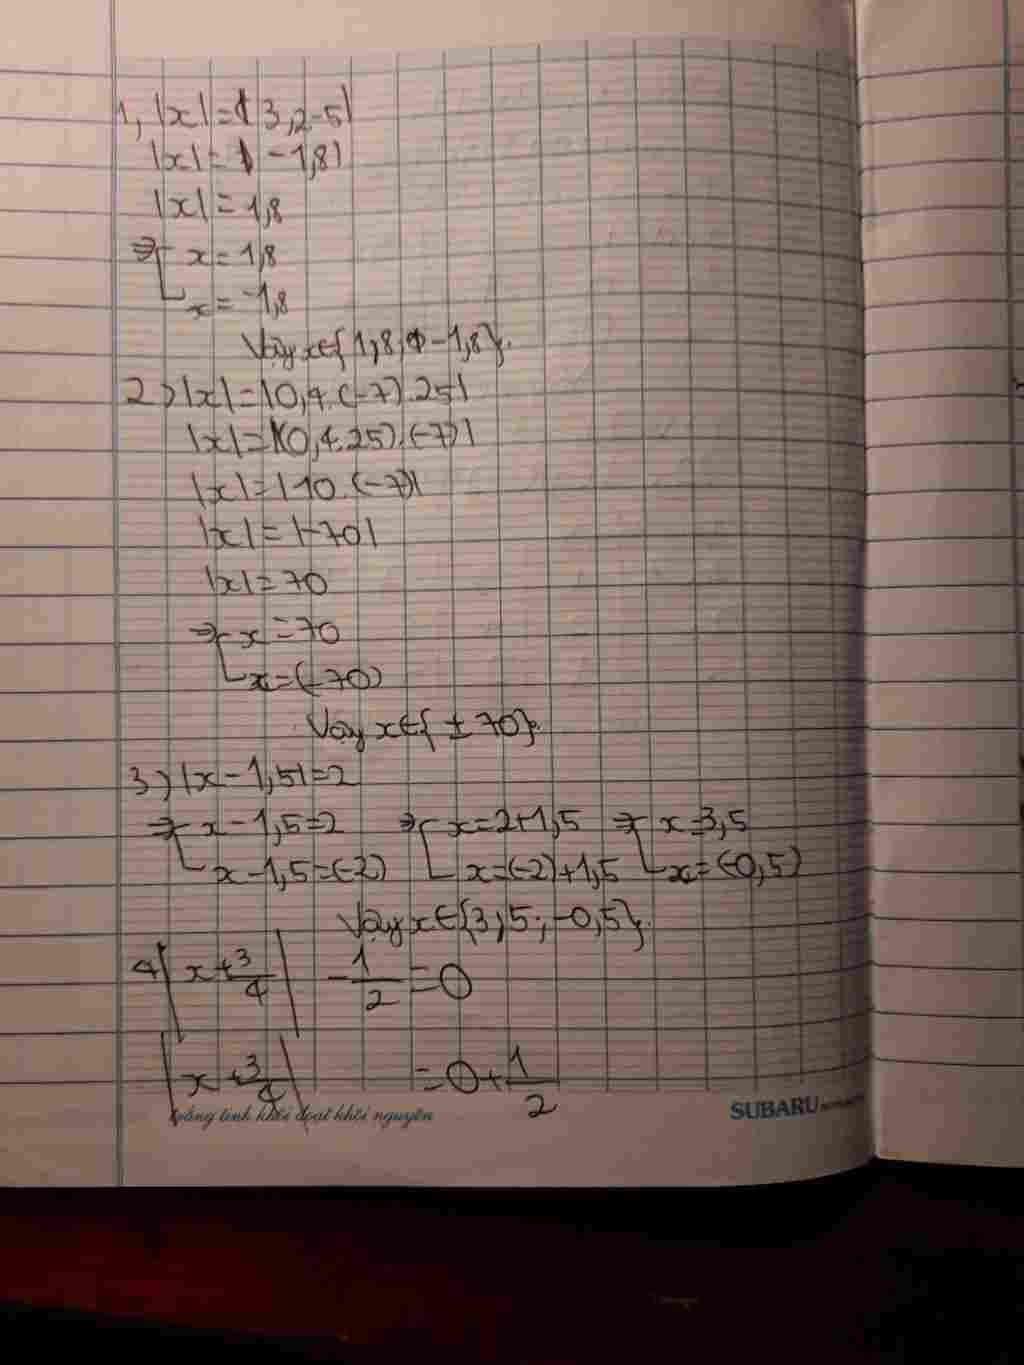 1, |x| = |3,2-5|
|x| = |-1,8|
|x| = 1,8
⇒ [ x = 1,8
x = -1,8
Vậy x∈{1,8; -1,8}.
2) |x| = |0,4.(-7).25|
|x| = |(0,4.25).(-7)|
|x| = |10.(-7)|
|x| = |-70|
|x| = 70
⇒ [ x = 70
x = (-70)
Vậy x∈{±70}.
3) |x-1,5| = 2
⇒ [ x-1,5=2 ⇒ [ x=2+1,5 ⇒ [ x=3,5
x-1,5=(-2) x=(-2)+1,5 x=(-0,5)
Vậy x∈{3,5; -0,5}.
4 |x+3/4| - 1/2 = 0
|x+3/4| = 0+1/2
trắng tinh khôi đoạt khôi nguyên SUBARU